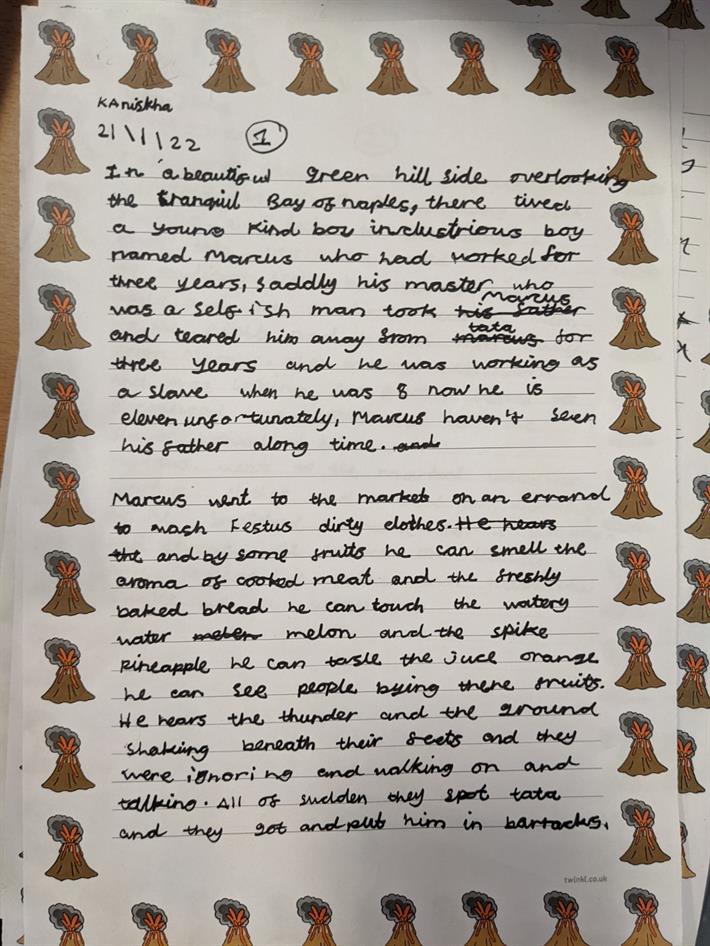 Kaniskha
21/1/22 1
In a beautiful green hill side overlooking
the tranquil Bay of naples, there lived
a young kind boy industrious boy
named Marcus who had worked for
three years, saddly his master who
Marcus
was a selfish man took his father
tata
and teared him away from marcus for
three years and he was working as
a slave when he was 8 now he is
eleven unfortunately, Marcus haven't seen
his father along time. and
Marcus went to the market on an errand
to wash Festus dirty clothes. He hears
the and by some fruits he can smell the
aroma of cooked meat and the freshly
baked bread he can touch the watery
water melen melon and the spike
pineapple he can taste the juce orange
he can see people bying there fruits.
He hears the thunder and the ground
shaking beneath their feets and they
were ignoring and walking on and
talking. All of sudden they spot tata
and they got and put him in barracks.
twinkl.co.uk